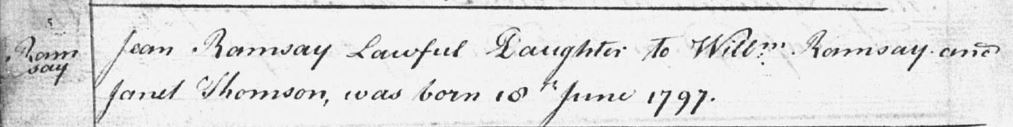 Ram
say
Jean Ramsay Lawful Daughter to Willm. Ramsay and
Janet Thomson, was born 18th June 1797.